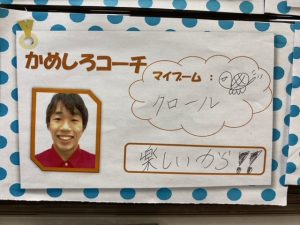 かめしろコーチ
マイブーム：
クロール
楽しいから!!